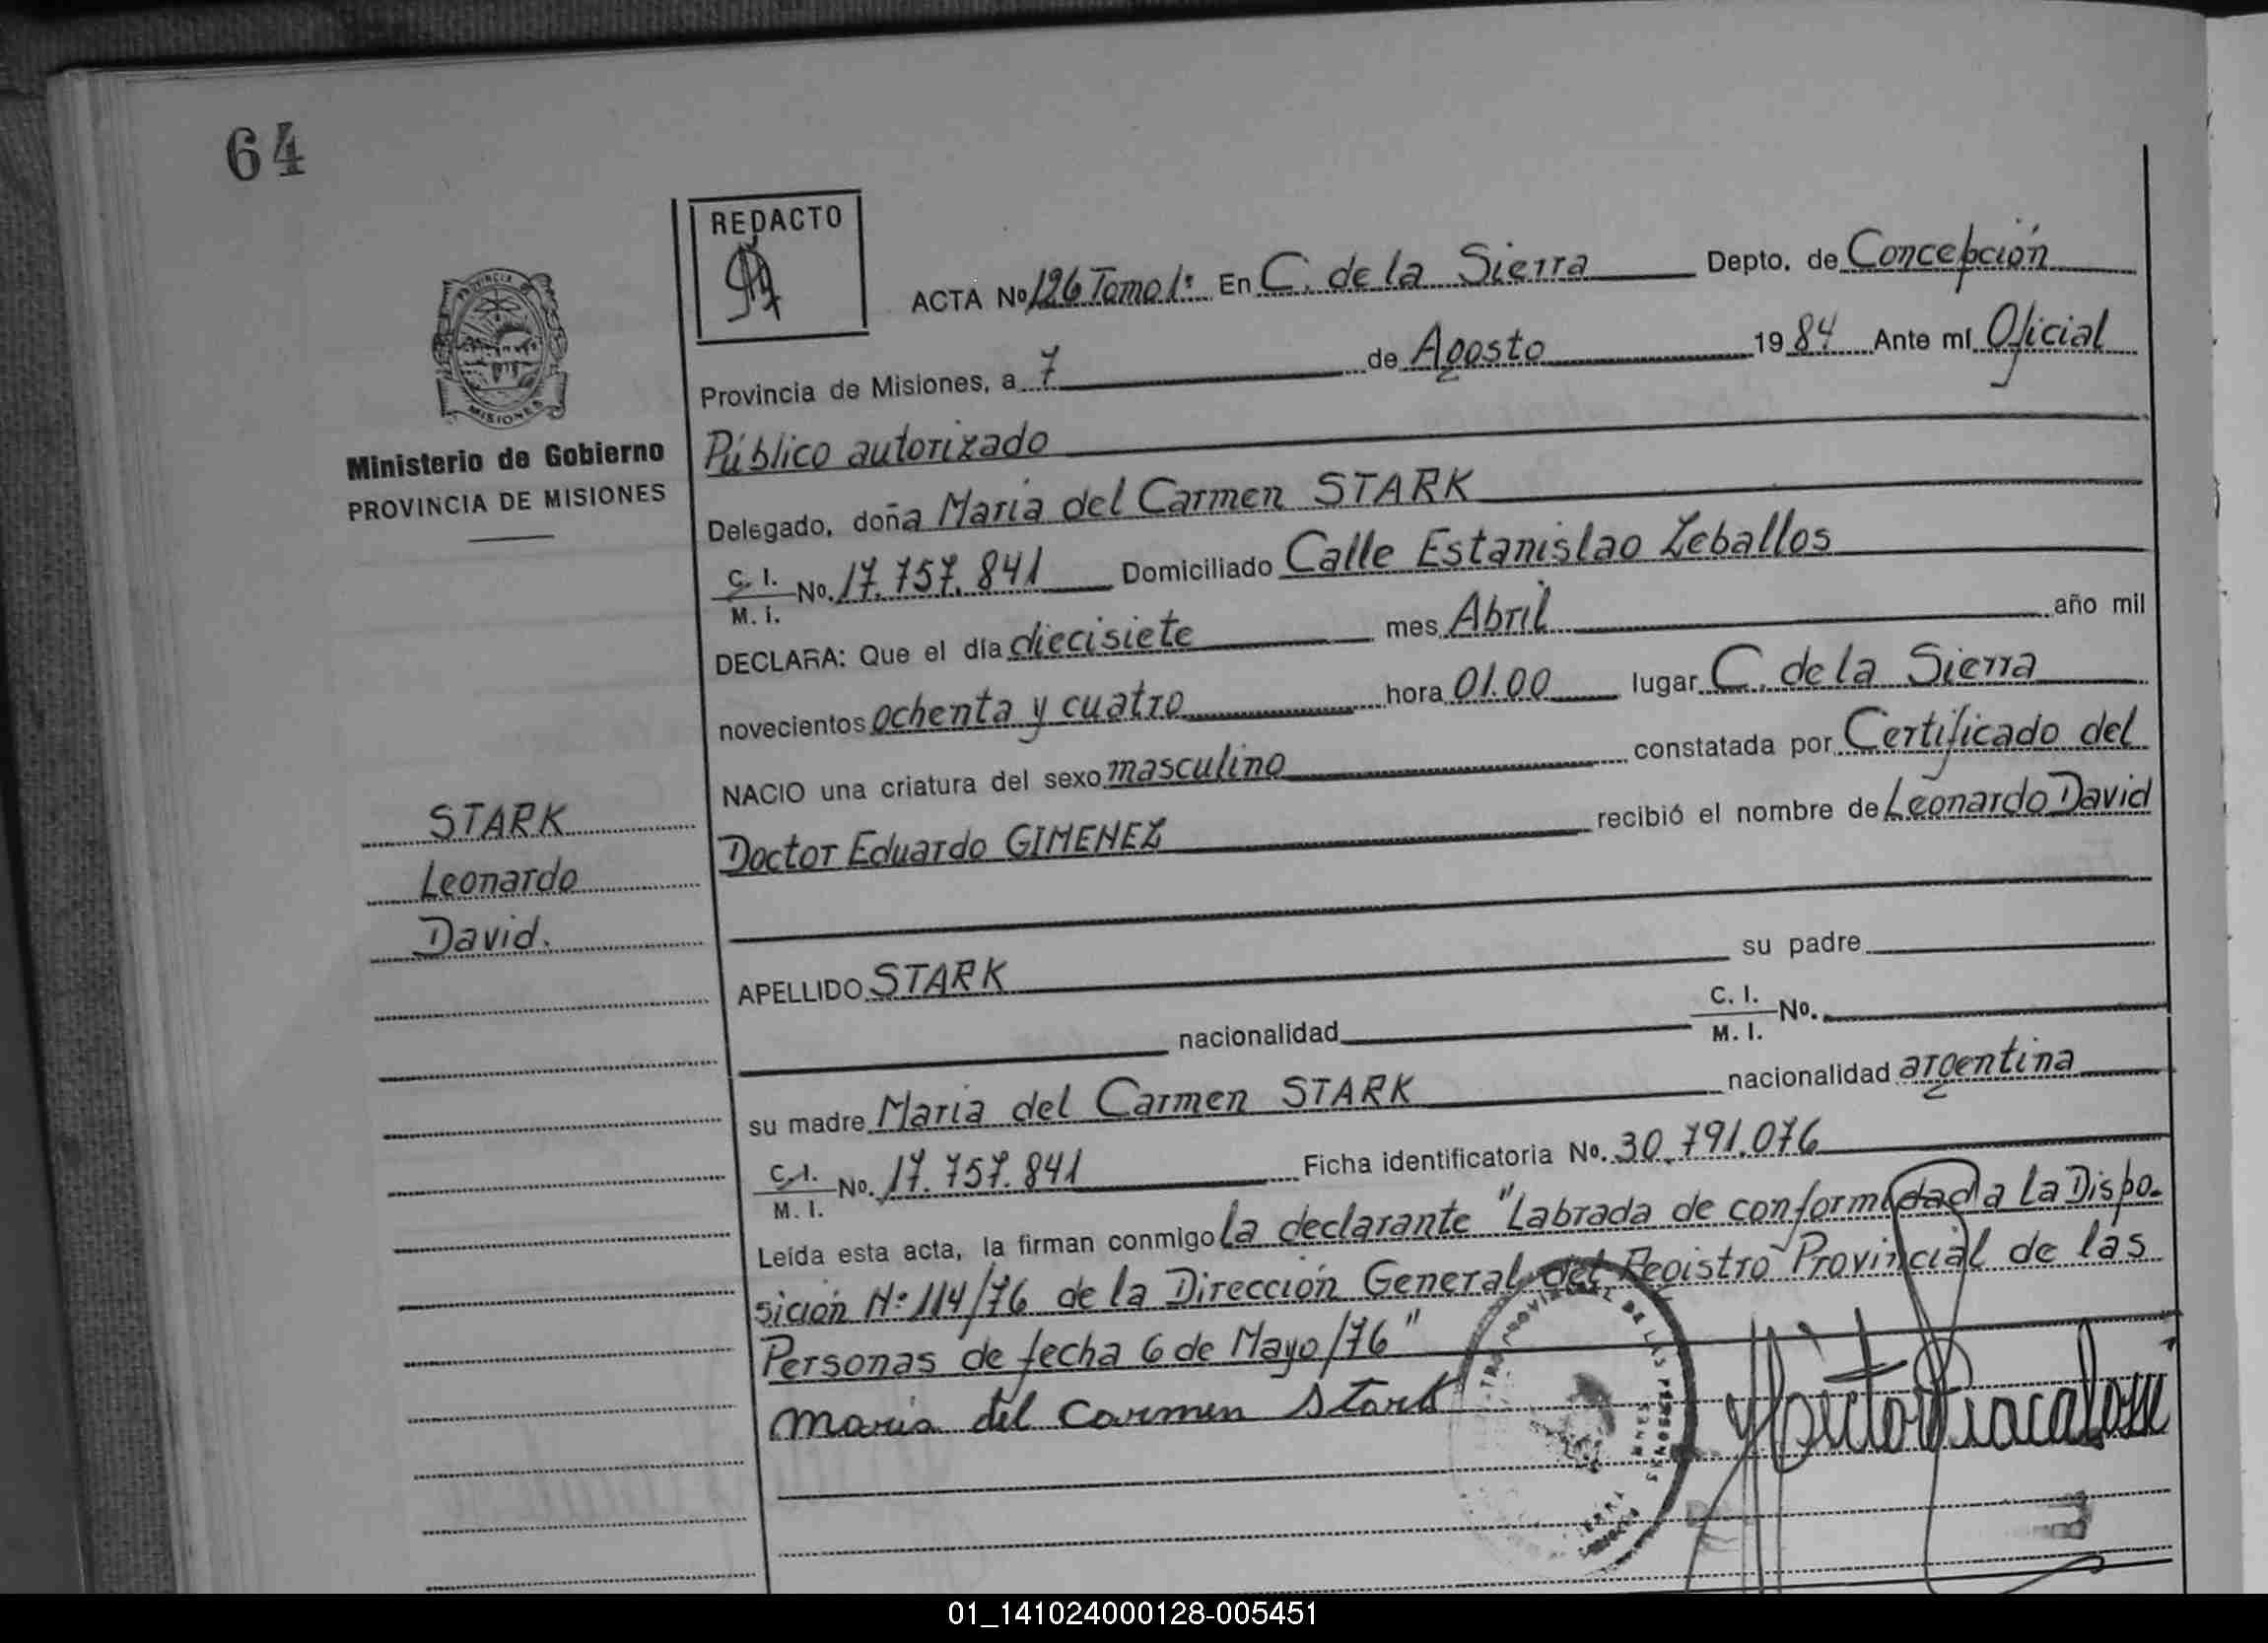 64
REDACTO
PROVINCIA DE
MISIONES
Ministerio de Gobierno
PROVINCIA DE MISIONES
ACTA Nº 126 Tomo 1º En C. de la Sierra Depto. de Concepción
Provincia de Misiones, a 7 de Agosto 1984 Ante mí Oficial
Público autorizado
Delegado, doña Maria del Carmen STARK
C. I. / M. I. No. 17.757.841 Domiciliado Calle Estanislao Zeballos
DECLARA: Que el día diecisiete mes Abril año mil
novecientos ochenta y cuatro hora 01.00 lugar C. de la Sierra
NACIO una criatura del sexo masculino constatada por Certificado del
Doctor Eduardo GIMENEZ recibió el nombre de Leonardo David
STARK
Leonardo
David.
APELLIDO STARK su padre
nacionalidad C. I. / M. I. No.
su madre Maria del Carmen STARK nacionalidad argentina
C. I. / M. I. No. 17.757.841 Ficha identificatoria No. 30.791.076
Leída esta acta, la firman conmigo la declarante "Labrada de conformidad a la Dispo-
sición Nº 114/76 de la Dirección General del Registro Provincial de las
Personas de fecha 6 de Mayo/76"
Maria del Carmen Stark
01_141024000128-005451